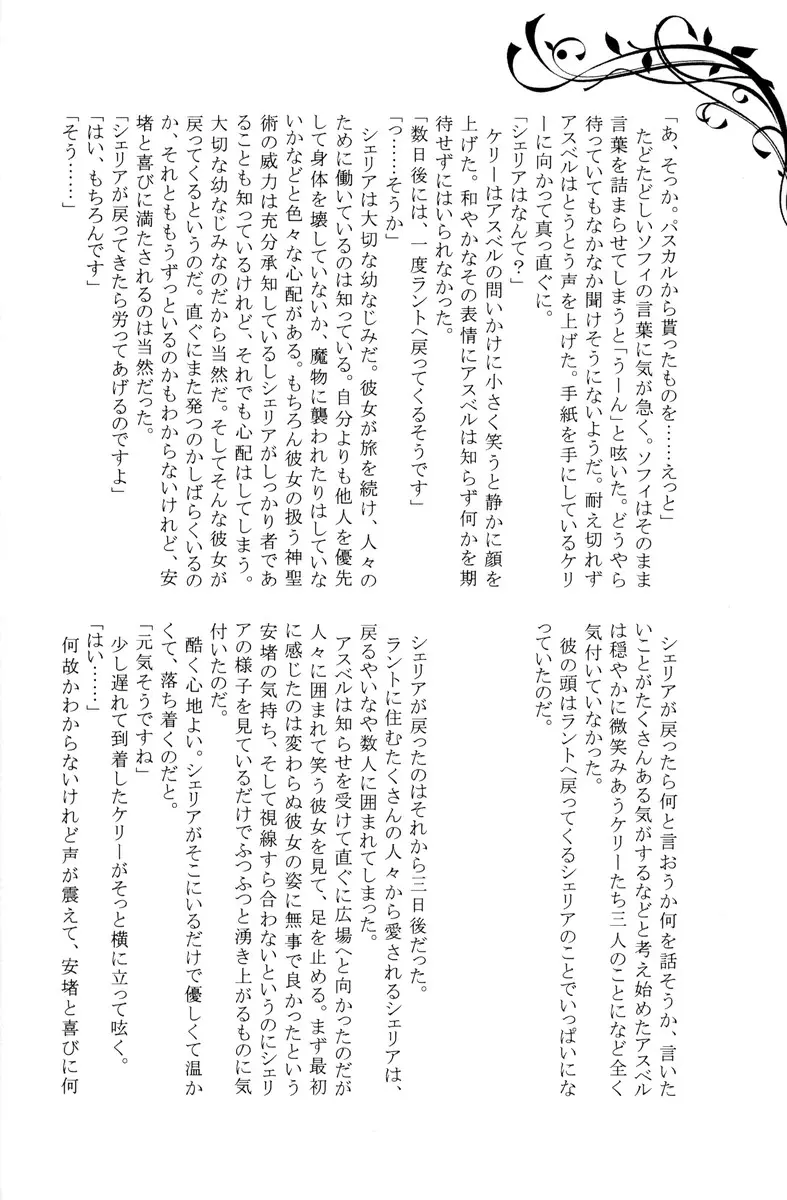 「あ、そっか。パスカルから貰ったものを……えっと」
　たどたどしいソフィの言葉に気が急く。ソフィはそのまま
言葉を詰まらせてしまうと「うーん」と呟いた。どうやら
待っていてもなかなか聞けそうにないようだ。耐え切れず
アスベルはとうとう声を上げた。手紙を手にしているケリ
ーに向かって真っ直ぐに。
「シェリアはなんて？」
　ケリーはアスベルの問いかけに小さく笑うと静かに顔を
上げた。和やかなその表情にアスベルは知らず何かを期
待せずにはいられなかった。
「数日後には、一度ラントへ戻ってくるそうです」
「っ……そうか」
　シェリアは大切な幼なじみだ。彼女が旅を続け、人々の
ために働いているのは知っている。自分よりも他人を優先
して身体を壊していないか、魔物に襲われたりはしていな
いかなどと色々な心配がある。もちろん彼女の扱う神聖
術の威力は充分承知しているしシェリアがしっかり者であ
ることも知っているけれど、それでも心配はしてしまう。
大切な幼なじみなのだから当然だ。そしてそんな彼女が
戻ってくるというのだ。直ぐにまた発つのかしばらくいるの
か、それとももうずっといるのかもわからないけれど、安
堵と喜びに満たされるのは当然だった。
「シェリアが戻ってきたら労ってあげるのですよ」
「はい、もちろんです」
「そう……」
　シェリアが戻ったら何と言おうか何を話そうか、言いた
いことがたくさんある気がするなどと考え始めたアスベル
は穏やかに微笑みあうケリーたち三人のことになど全く
気付いていなかった。
　彼の頭はラントへ戻ってくるシェリアのことでいっぱいにな
っていたのだ。
　シェリアが戻ったのはそれから三日後だった。
　ラントに住むたくさんの人々から愛されるシェリアは、
戻るやいなや数人に囲まれてしまった。
　アスベルは知らせを受けて直ぐに広場へと向かったのだが
人々に囲まれて笑う彼女を見て、足を止める。まず最初
に感じたのは変わらぬ彼女の姿に無事で良かったという
安堵の気持ち、そして視線すら合わないというのにシェリ
アの様子を見ているだけでふつふつと湧き上がるものに気
付いたのだ。
　酷く心地よい。シェリアがそこにいるだけで優しくて温か
くて、落ち着くのだと。
「元気そうですね」
　少し遅れて到着したケリーがそっと横に立って呟く。
「はい……」
　何故かわからないけれど声が震えて、安堵と喜びに何